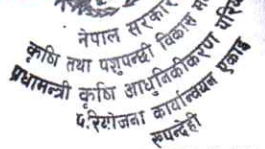 नेपाल सरकार
कृषि तथा पशुपन्छी विकास
प्रधामन्त्री कृषि आधुनिकीकरण
परियोजना कार्यान्वयन एकाइ
रुपन्देही